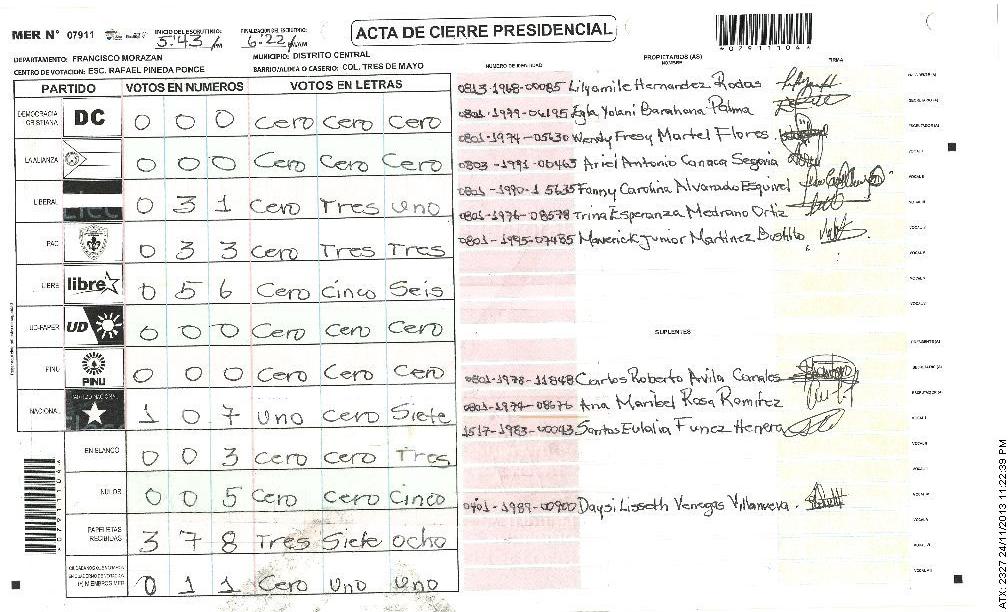 MER N° 07911
INICIO DEL ESCRUTINIO: 5:43/PM
FINALIZACION DEL ESCRUTINIO: 6:22/
ACTA DE CIERRE PRESIDENCIAL
*079111044*
DEPARTAMENTO: FRANCISCO MORAZAN
MUNICIPIO: DISTRITO CENTRAL
CENTRO DE VOTACION: ESC. RAFAEL PINEDA PONCE
BARRIO/ALDEA O CASERIO: COL. TRES DE MAYO
PARTIDO VOTOS EN NUMEROS VOTOS EN LETRAS
DEMOCRACIA CRISTIANA DC 0 0 0 Cero Cero Cero
LA ALIANZA 0 0 0 Cero Cero Cero
LIBERAL 0 3 1 Cero Tres Uno
PAC 0 3 3 Cero Tres Tres
LIBRE libre 0 5 6 Cero Cinco Seis
UD-FAPER UD 0 0 0 Cero Cero Cero
PINU PINU 0 0 0 Cero Cero Cero
NACIONAL 1 0 7 Uno Cero Siete
EN BLANCO 0 0 3 Cero Cero Tres
NULOS 0 0 5 Cero Cero Cinco
PAPELETAS RECIBIDAS 3 7 8 Tres Siete Ocho
0 1 1 Cero Uno Uno
NUMERO DE IDENTIDAD PROPIETARIOS (AS) NOMBRE FIRMA
0813-1968-00085 Lilyamile Hernandez Rodas
0801-1999-06195 Egla Yolani Barahona Palma
0801-1974-05630 Wendy Fresy Martel Flores
0803-1991-00463 Ariel Antonio Canaca Segovia
0801-1990-15635 Fanny Carolina Alvarado Esquivel
0801-1976-08578 Trina Esperanza Medrano Ortiz
0801-1995-07485 Maverick Junior Martinez Bustillo
SUPLENTES
0801-1978-11848 Carlos Roberto Avila Canales
0801-1974-08676 Ana Maribel Rosa Ramirez
1517-1983-00043 Santos Eulalia Funez Herrera
0401-1987-00900 Daysi Lisseth Venegas Villanueva
ATX: 2327 24/11/2013 11:22:39 PM